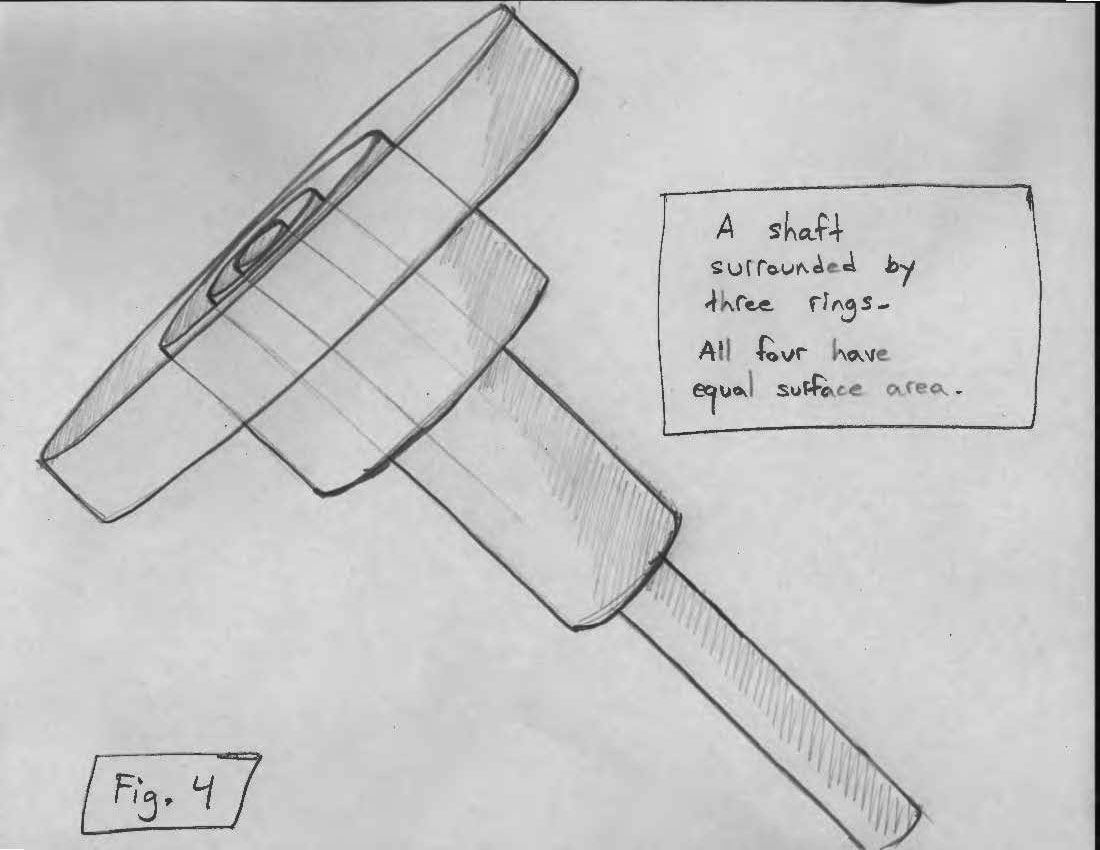 A shaft
surrounded by
three rings-
All four have
equal surface area.
Fig. 4